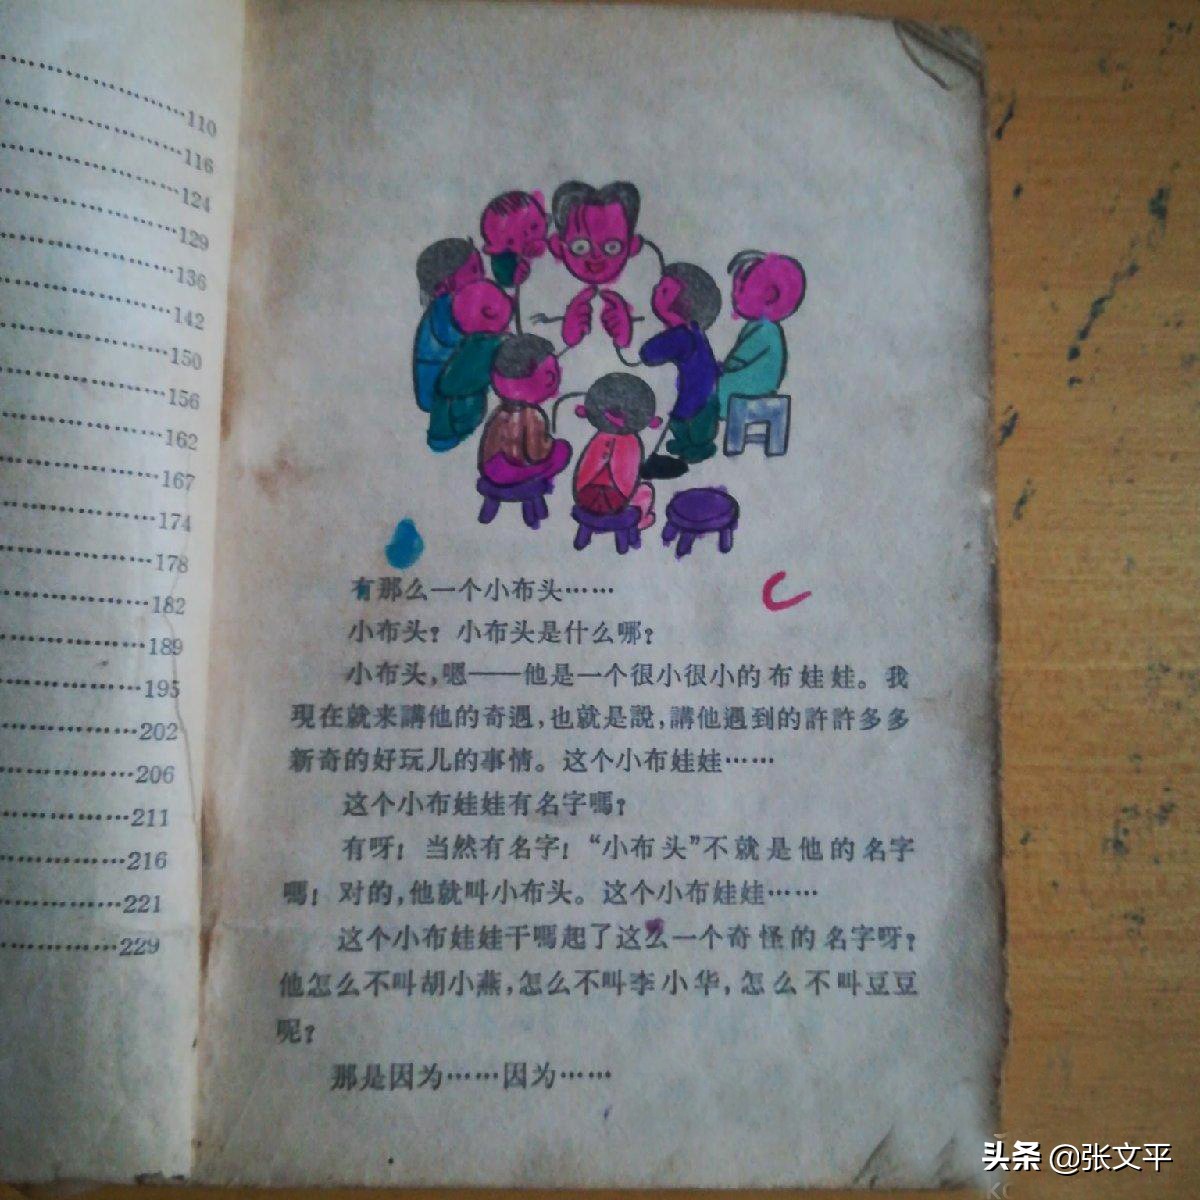 ……110
……116
……124
……129
……136
……142
……150
……156
……162
……167
……174
……178
……182
……189
……195
……202
……206
……211
……216
……221
……229
有那么一个小布头……
小布头？小布头是什么哪？
小布头，嗯——他是一个很小很小的布娃娃。我
現在就来講他的奇遇，也就是說，講他遇到的許許多多
新奇的好玩儿的事情。这个小布娃娃……
这个小布娃娃有名字嗎？
有呀！当然有名字！“小布头”不就是他的名字
嗎！对的，他就叫小布头。这个小布娃娃……
这个小布娃娃干嗎起了这么一个奇怪的名字呀？
他怎么不叫胡小燕，怎么不叫李小华，怎么不叫豆豆
呢？
那是因为……因为……
头条 @张文平